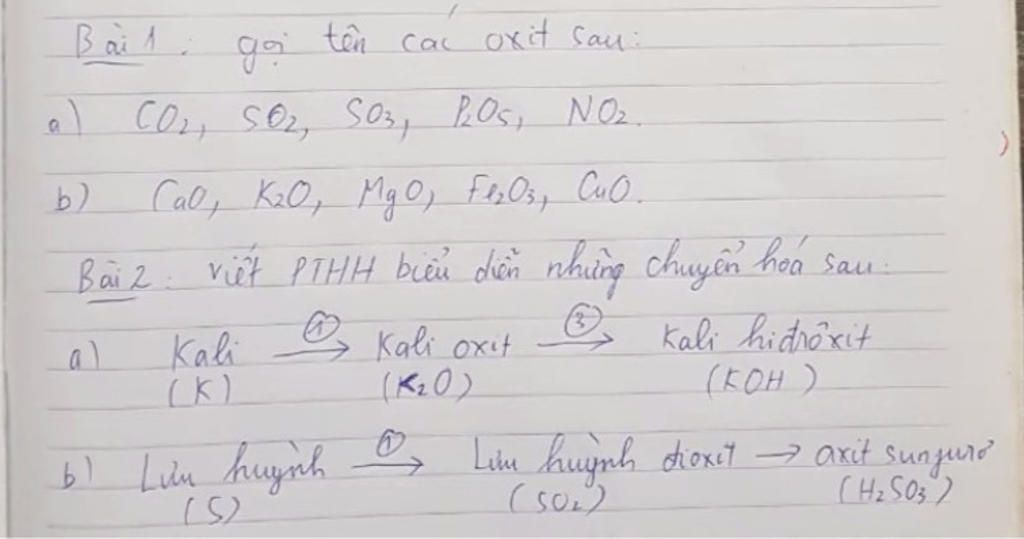 Bài 1 : gọi tên các oxit sau:
a) CO2, SO2, SO3, P2O5, NO2.
b) CaO, K2O, MgO, Fe2O3, CuO.
Bài 2 : viết PTHH biểu diễn những chuyển hoá sau:
a) Kali ①→ Kali oxit ③→ Kali hiđrôxit
(K) (K2O) (KOH)
b) Lưu huỳnh ①→ Lưu huỳnh đioxit → axit sunfurơ
(S) (SO2) (H2SO3)